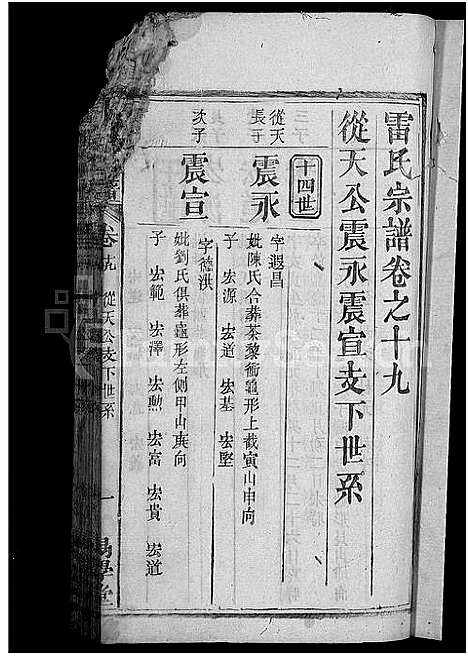 雷氏宗譜卷之十九
從天公震永震宣支下世系
十四世
從天長子
震永
字遐昌
妣陳氏合葬茶黎衝龜形上截寅山申向
子 宏源 宏道 宏基 宏堅
次子
震宣
字德淇
妣劉氏俱葬龜形左側甲山庚向
子 宏範 宏澤 宏勲 宏富 宏貴 宏道
卷十九 從天公支下世系 一